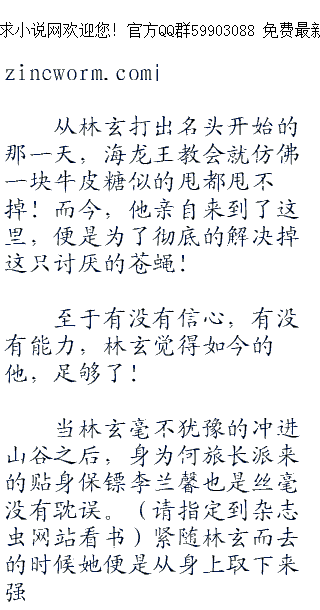 求小说网欢迎您！官方QQ群59903088 免费最新
zincworm.com¡
从林玄打出名头开始的
那一天，海龙王教会就仿佛
一块牛皮糖似的甩都甩不
掉！而今，他亲自来到了这
里，便是为了彻底的解决掉
这只讨厌的苍蝇！
至于有没有信心，有没
有能力，林玄觉得如今的
他，足够了！
当林玄毫不犹豫的冲进
山谷之后，身为何旅长派来
的贴身保镖李兰馨也是丝毫
没有耽误。（请指定到杂志
虫网站看书）紧随林玄而去
的时候她便是从身上取下来
强